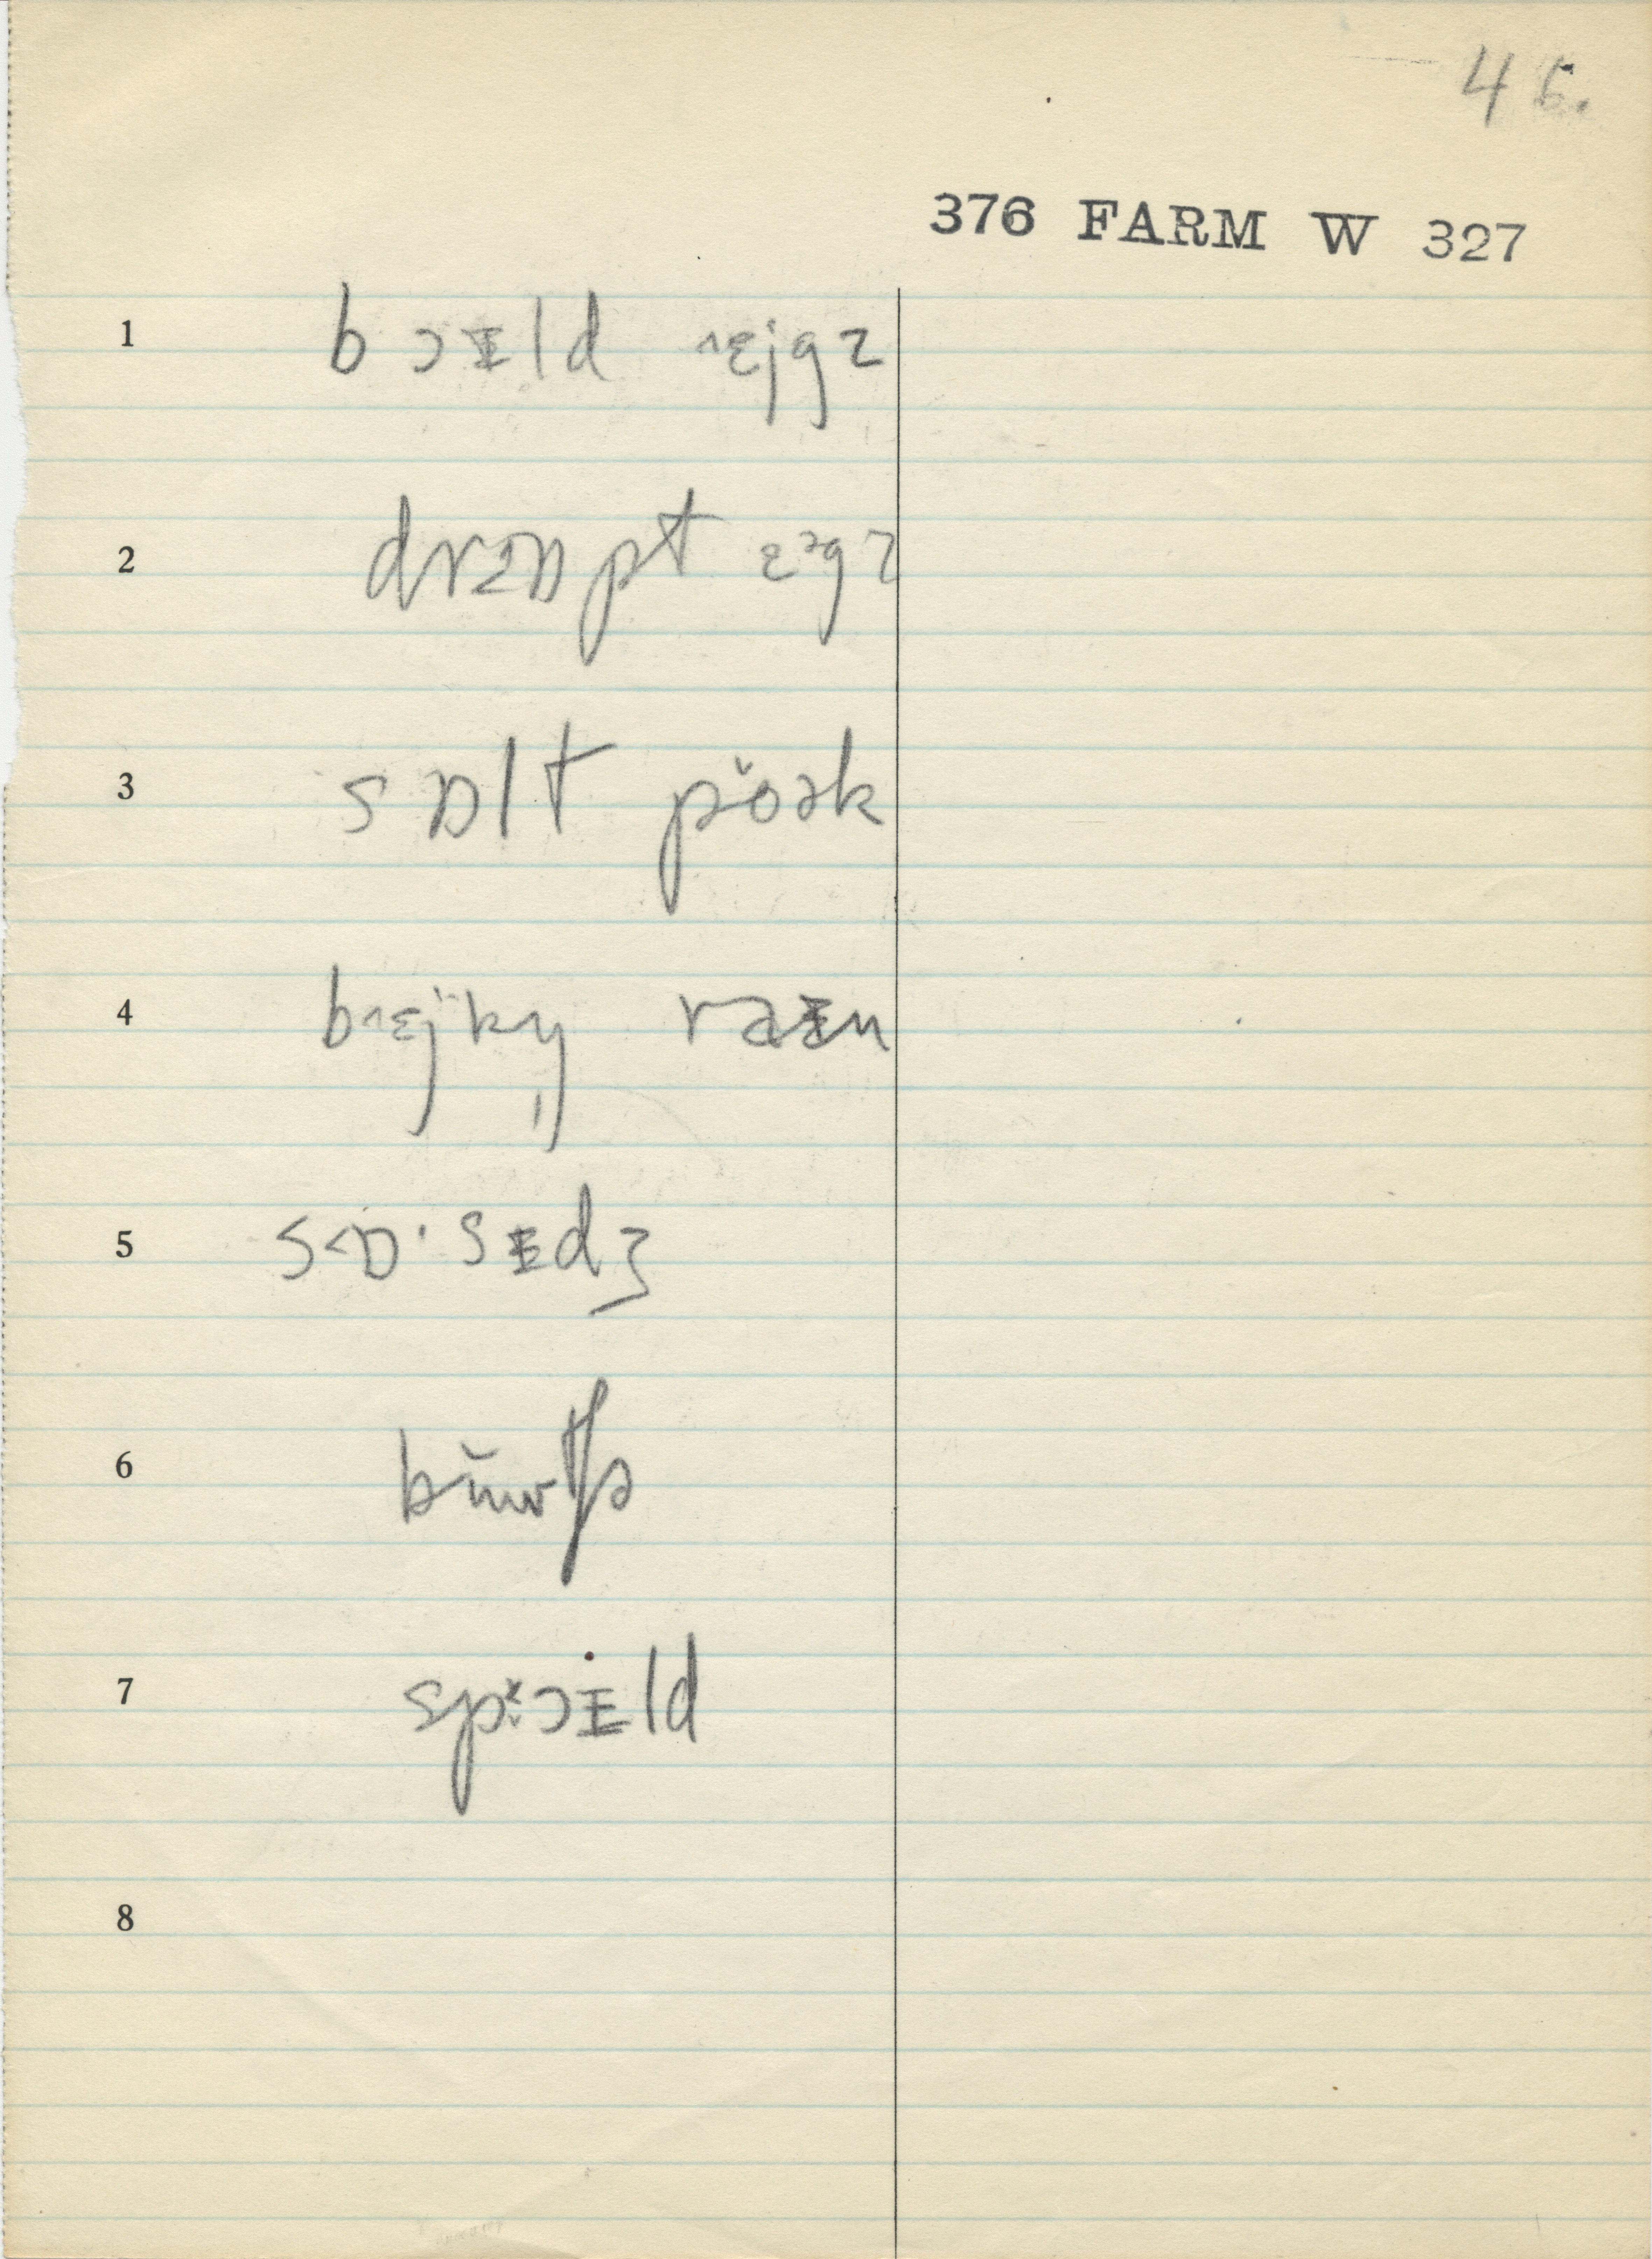 46.
376 FARM W 327
1 bɔᵻld ˄ɛjgz
2 drɒpt ɛᵊgz
3 sɒlt pǒək
4 b˄ɛjkŋ raᵻn
5 s˂ɒ·sᵻdʒ
6 bŭwtʃə
7 spɔᵻld
8